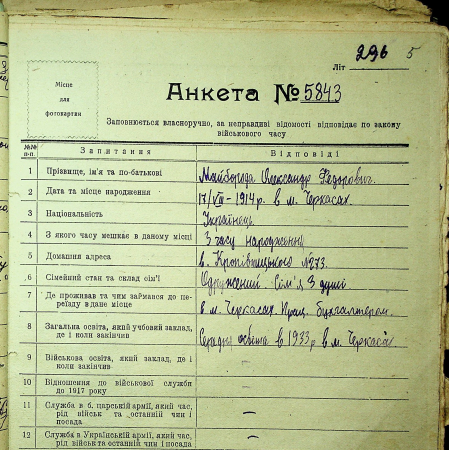 296 5
Літ
Місце
для
фотокартки
Анкета № 5843
Заповнюється власноручно, за неправдиві відомості відповідає по закону
військового часу
№№ п-п. Запитання Відповіді
1 Прізвище, ім'я та по-батькові Майборода Олександр Федорович.
2 Дата та місце народження 17/VIII – 1914 р. в м. Черкасах.
3 Національність Українець
4 З якого часу мешкає в даному місці З часу народження
5 Домашня адреса в. Кропівницького №273.
6 Сімейний стан та склад сім'ї Одружений. Сім'я 3 душі
7 Де проживав та чим займався до переїзду в дане місце в м. Черкасах. Прац. бухгалтером.
8 Загальна освіта, який учбовий заклад, де і коли закінчив Середня освіта в 1933 р. в м. Черкасах.
9 Військова освіта, який заклад, де і коли закінчив —
10 Відношення до військової служби до 1917 року —
11 Служба в б. царській армії, який час, рід військ та останній чин і посада —
12 Служба в Українській армії, який час, рід військ та останній чин і посада —